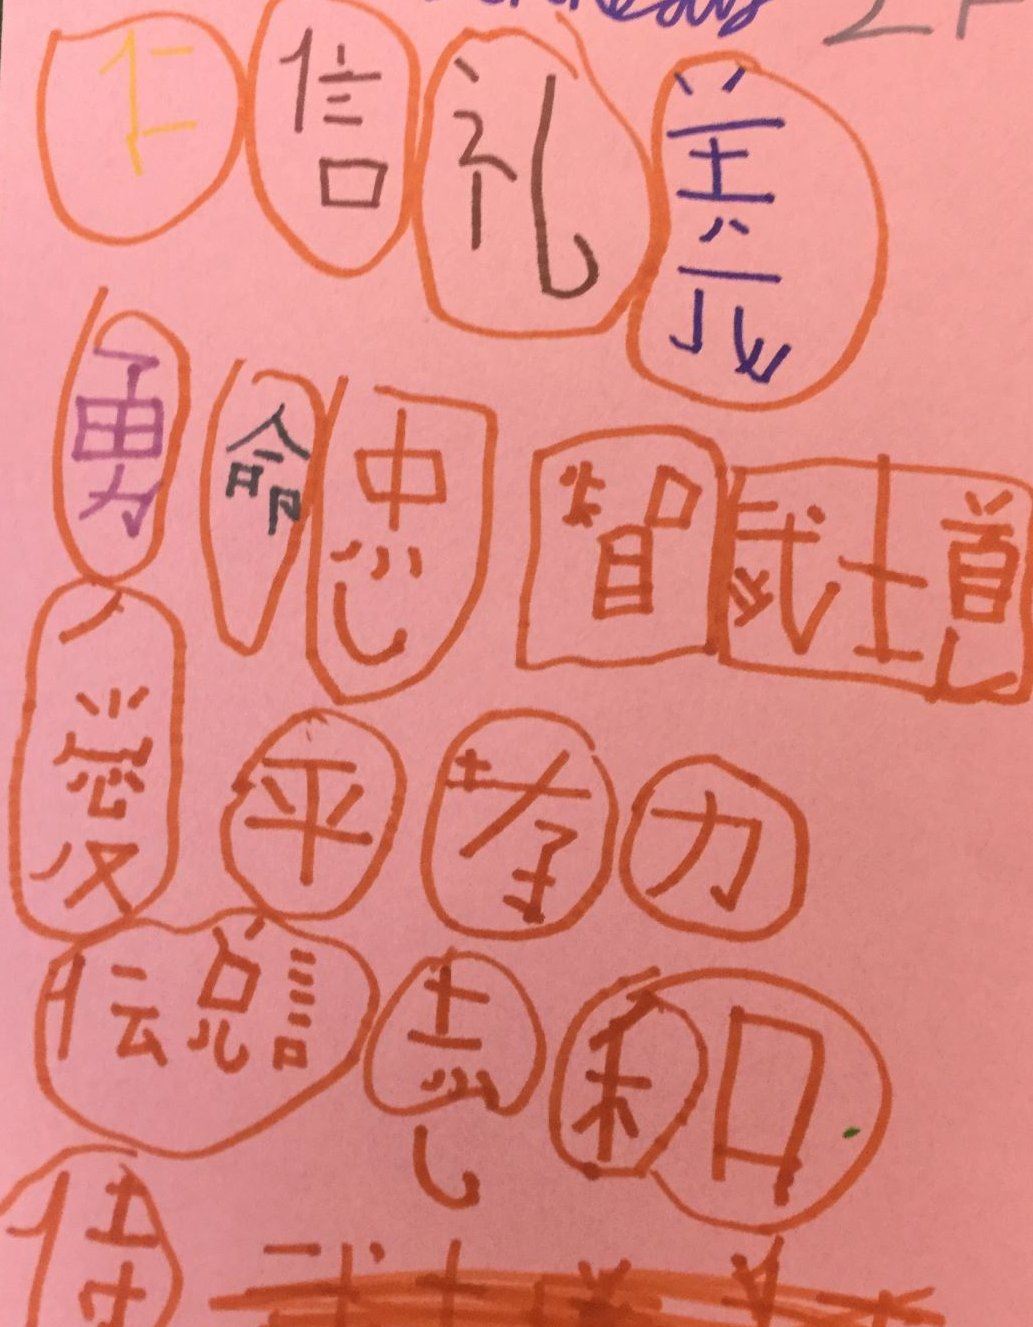 仁 信 礼 義
勇 命 忠 智 武士道
愛 平 孝 力
伝説 志 和
侍